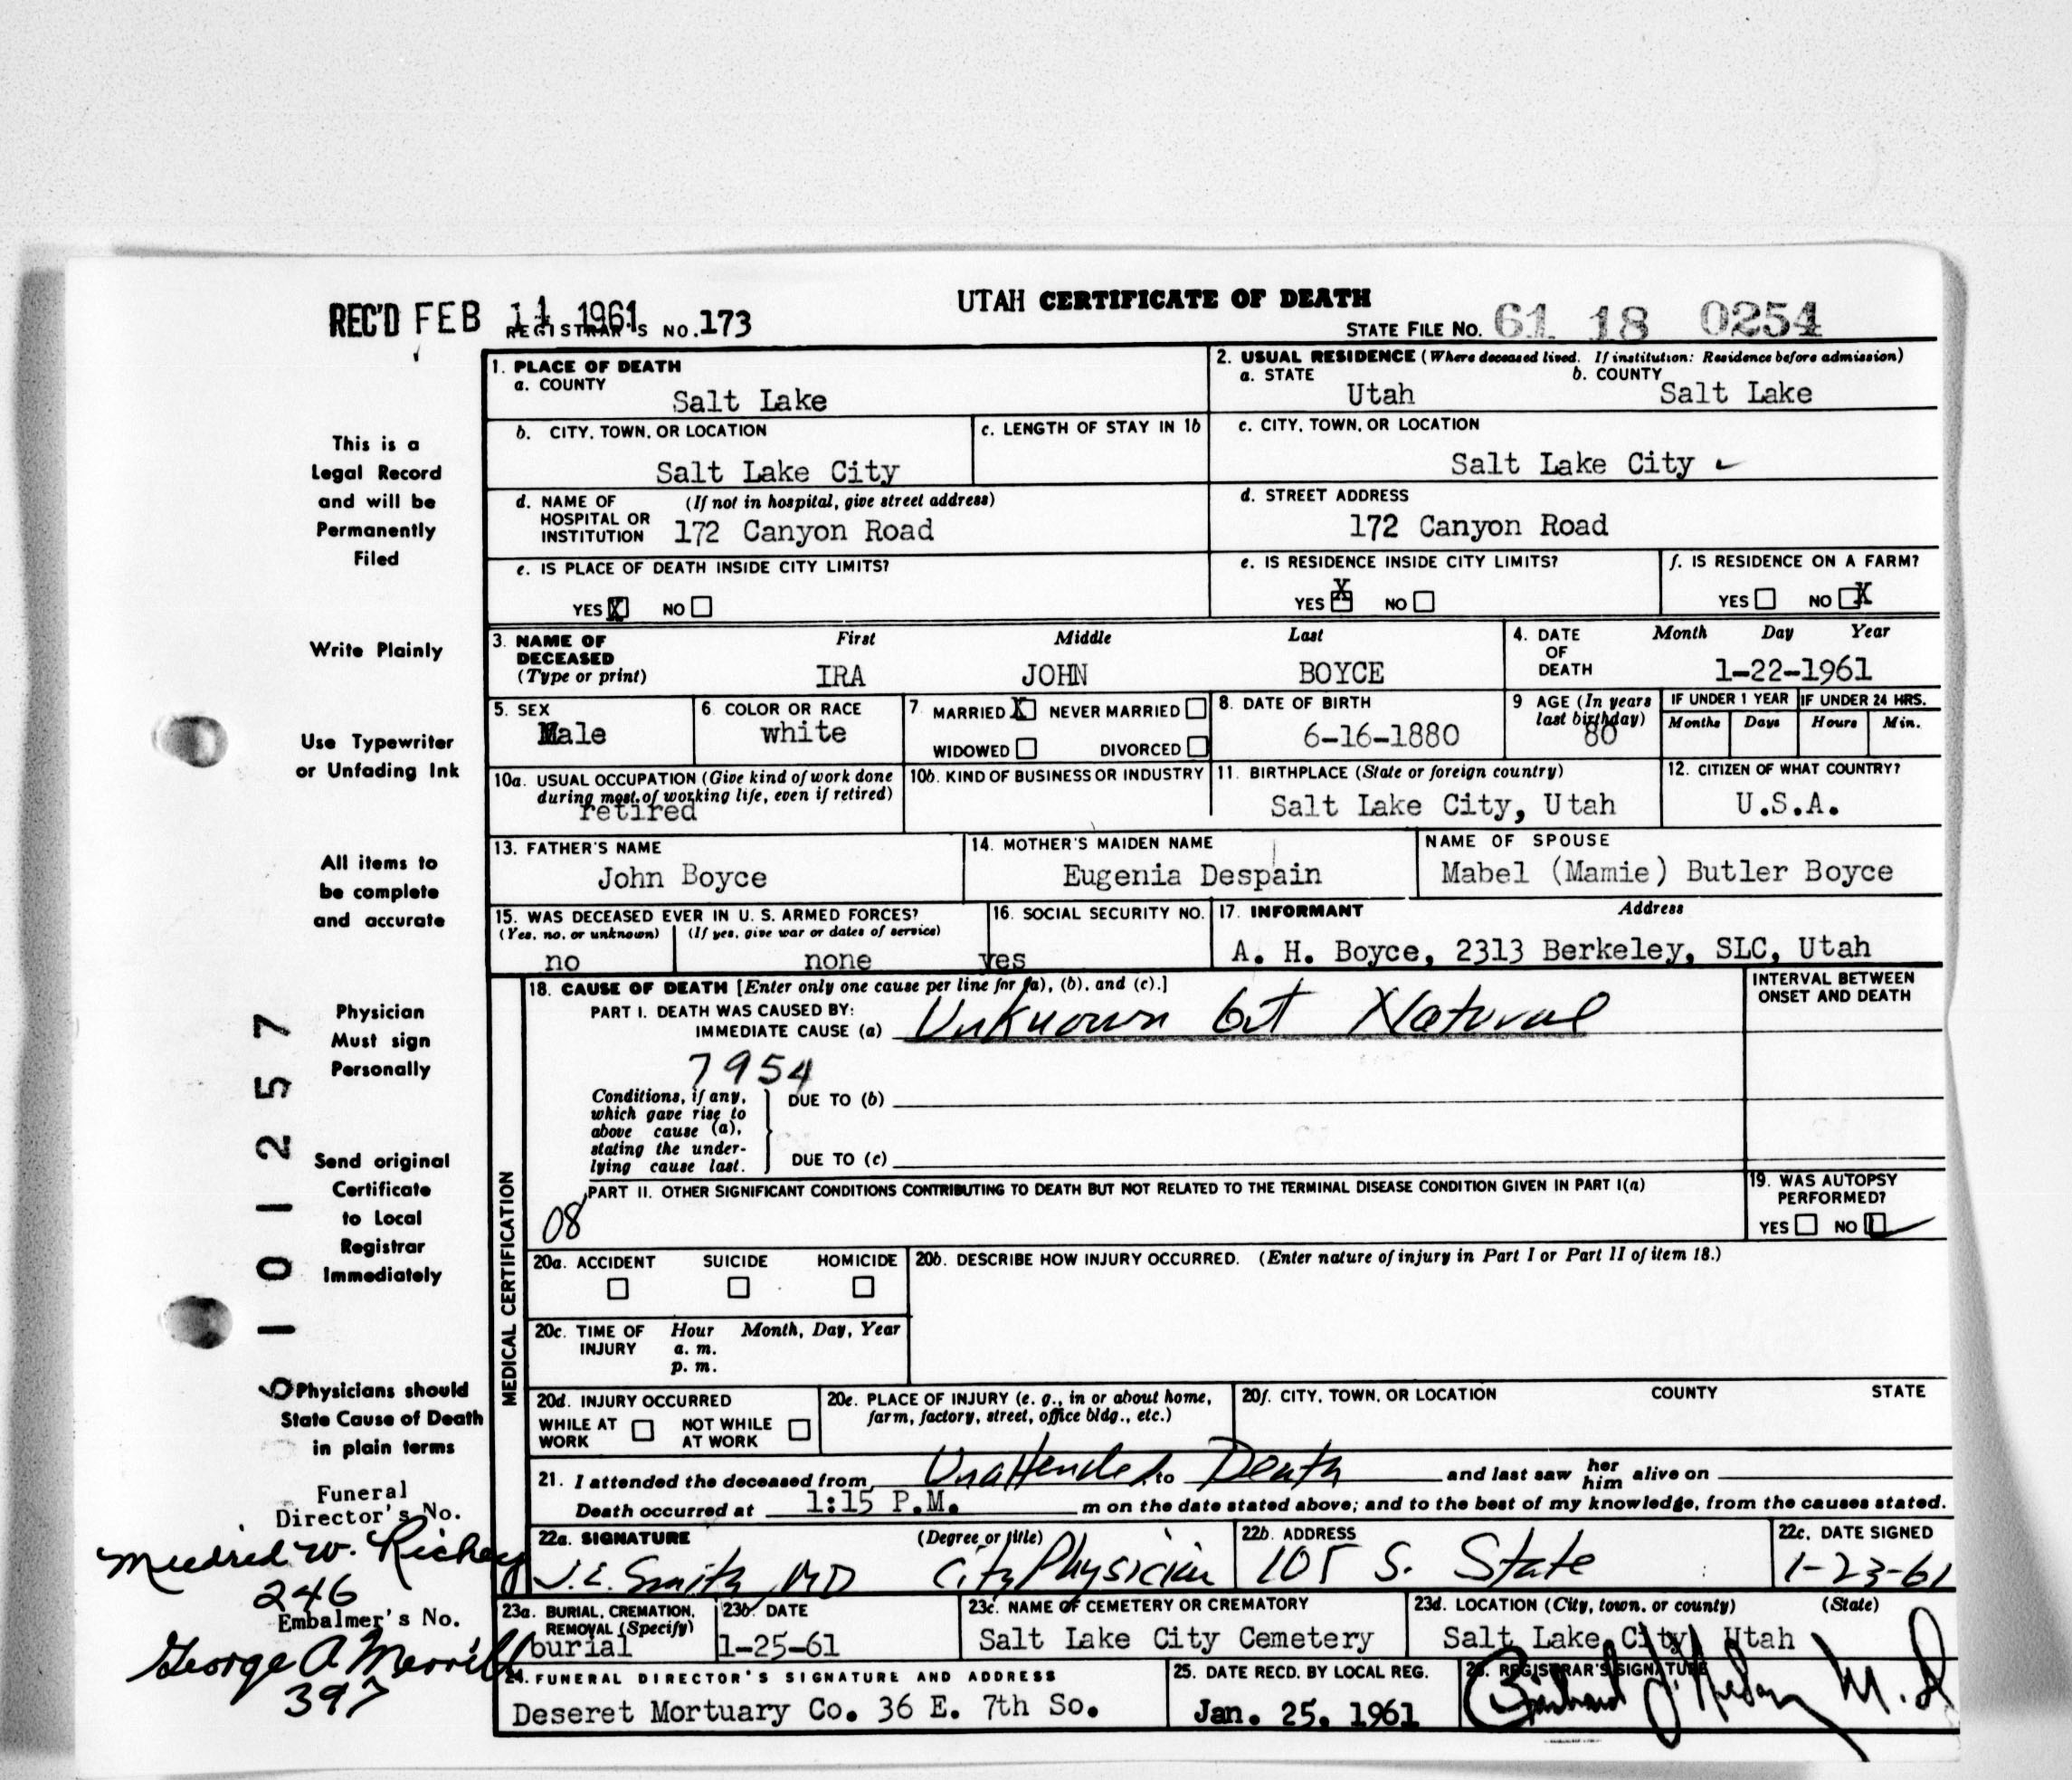 REC'D FEB 11 1961
REGISTRAR'S NO. 173
UTAH CERTIFICATE OF DEATH
STATE FILE NO. 61 18 0254
1. PLACE OF DEATH
a. COUNTY
Salt Lake
2. USUAL RESIDENCE (Where deceased lived. If institution: Residence before admission)
a. STATE b. COUNTY
Utah Salt Lake
b. CITY, TOWN, OR LOCATION
Salt Lake City
c. LENGTH OF STAY IN 1b
c. CITY, TOWN, OR LOCATION
Salt Lake City
d. NAME OF HOSPITAL OR INSTITUTION (If not in hospital, give street address)
172 Canyon Road
d. STREET ADDRESS
172 Canyon Road
e. IS PLACE OF DEATH INSIDE CITY LIMITS?
YES X NO
e. IS RESIDENCE INSIDE CITY LIMITS?
YES X NO
f. IS RESIDENCE ON A FARM?
YES NO X
3. NAME OF DECEASED (Type or print)
First Middle Last
IRA JOHN BOYCE
4. DATE OF DEATH Month Day Year
1-22-1961
5. SEX
Male
6. COLOR OR RACE
white
7. MARRIED X NEVER MARRIED
WIDOWED DIVORCED
8. DATE OF BIRTH
6-16-1880
9 AGE (In years last birthday)
80
IF UNDER 1 YEAR IF UNDER 24 HRS.
Months Days Hours Min.
10a. USUAL OCCUPATION (Give kind of work done during most of working life, even if retired)
retired
10b. KIND OF BUSINESS OR INDUSTRY
11. BIRTHPLACE (State or foreign country)
Salt Lake City, Utah
12. CITIZEN OF WHAT COUNTRY?
U.S.A.
13. FATHER'S NAME
John Boyce
14. MOTHER'S MAIDEN NAME
Eugenia Despain
NAME OF SPOUSE
Mabel (Mamie) Butler Boyce
15. WAS DECEASED EVER IN U. S. ARMED FORCES?
(Yes, no, or unknown) (If yes, give war or dates of service)
no none
16. SOCIAL SECURITY NO.
yes
17. INFORMANT Address
A. H. Boyce, 2313 Berkeley, SLC, Utah
MEDICAL CERTIFICATION
18. CAUSE OF DEATH [Enter only one cause per line for (a), (b), and (c).]
PART I. DEATH WAS CAUSED BY:
IMMEDIATE CAUSE (a) Unknown but Natural
7954
INTERVAL BETWEEN ONSET AND DEATH
Conditions, if any, which gave rise to above cause (a), stating the underlying cause last.
DUE TO (b)
DUE TO (c)
PART II. OTHER SIGNIFICANT CONDITIONS CONTRIBUTING TO DEATH BUT NOT RELATED TO THE TERMINAL DISEASE CONDITION GIVEN IN PART I(a)
08
19. WAS AUTOPSY PERFORMED?
YES NO
20a. ACCIDENT SUICIDE HOMICIDE
20b. DESCRIBE HOW INJURY OCCURRED. (Enter nature of injury in Part I or Part II of item 18.)
20c. TIME OF INJURY Hour Month, Day, Year
a. m.
p. m.
20d. INJURY OCCURRED
WHILE AT WORK NOT WHILE AT WORK
20e. PLACE OF INJURY (e. g., in or about home, farm, factory, street, office bldg., etc.)
20f. CITY, TOWN, OR LOCATION COUNTY STATE
21. I attended the deceased from Unattended to Death and last saw her him alive on
Death occurred at 1:15 P.M. m on the date stated above; and to the best of my knowledge, from the causes stated.
22a. SIGNATURE (Degree or title)
J.E. Smith MD City Physician
22b. ADDRESS
105 S. State
22c. DATE SIGNED
1-23-61
23a. BURIAL, CREMATION, REMOVAL (Specify)
burial
23b. DATE
1-25-61
23c. NAME OF CEMETERY OR CREMATORY
Salt Lake City Cemetery
23d. LOCATION (City, town, or county) (State)
Salt Lake City Utah
24. FUNERAL DIRECTOR'S SIGNATURE AND ADDRESS
Deseret Mortuary Co. 36 E. 7th So.
25. DATE RECD. BY LOCAL REG.
Jan. 25, 1961
26. REGISTRAR'S SIGNATURE
M.D
This is a
Legal Record
and will be
Permanently
Filed
Write Plainly
Use Typewriter
or Unfading Ink
All items to
be complete
and accurate
Physician
Must sign
Personally
Send original
Certificate
to Local
Registrar
Immediately
Physicians should
State Cause of Death
in plain terms
6101257
Funeral
Director's No.
Mildred W. Richey
246
Embalmer's No.
George A Merrill
397